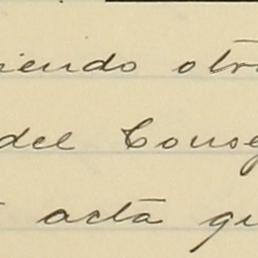 iendo otr
del Conse
acta qu